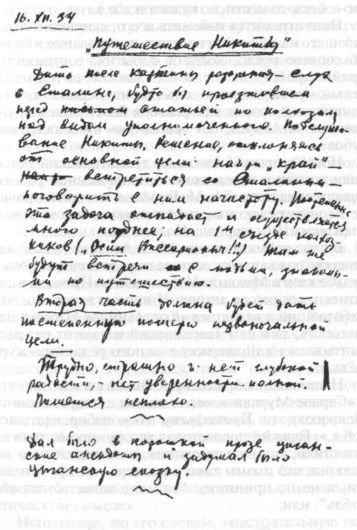 16. XII. 34
"Путешествие Никиты"
Дать после картины раздачи — Слух
о Сталине, будто бы проезжавшем
перед статьей по колхозам
под видом уполномоченного. Путешество-
вание Никиты. Решение, отклоняясь
от основной цели найти "край"
встретиться со Сталиным —
поговорить с ним начистоту. Постепенно
эта задача отпадает и осуществляется
много позднее, на 1м съезде колхоз-
ников ("Осип Виссарионыч!!") Там же
будут встречи с людьми, знакомы-
ми по путешествию.
Вторая часть должна будет дать
постепенную потерю первоначальной
цели.
Трудно, страшно и нет глубокой
радости, нет уверенности полной.
Пишется неплохо.
Дал было в хорошей прозе цыган-
ские анекдоты и задумал было
цыганскую сказку.